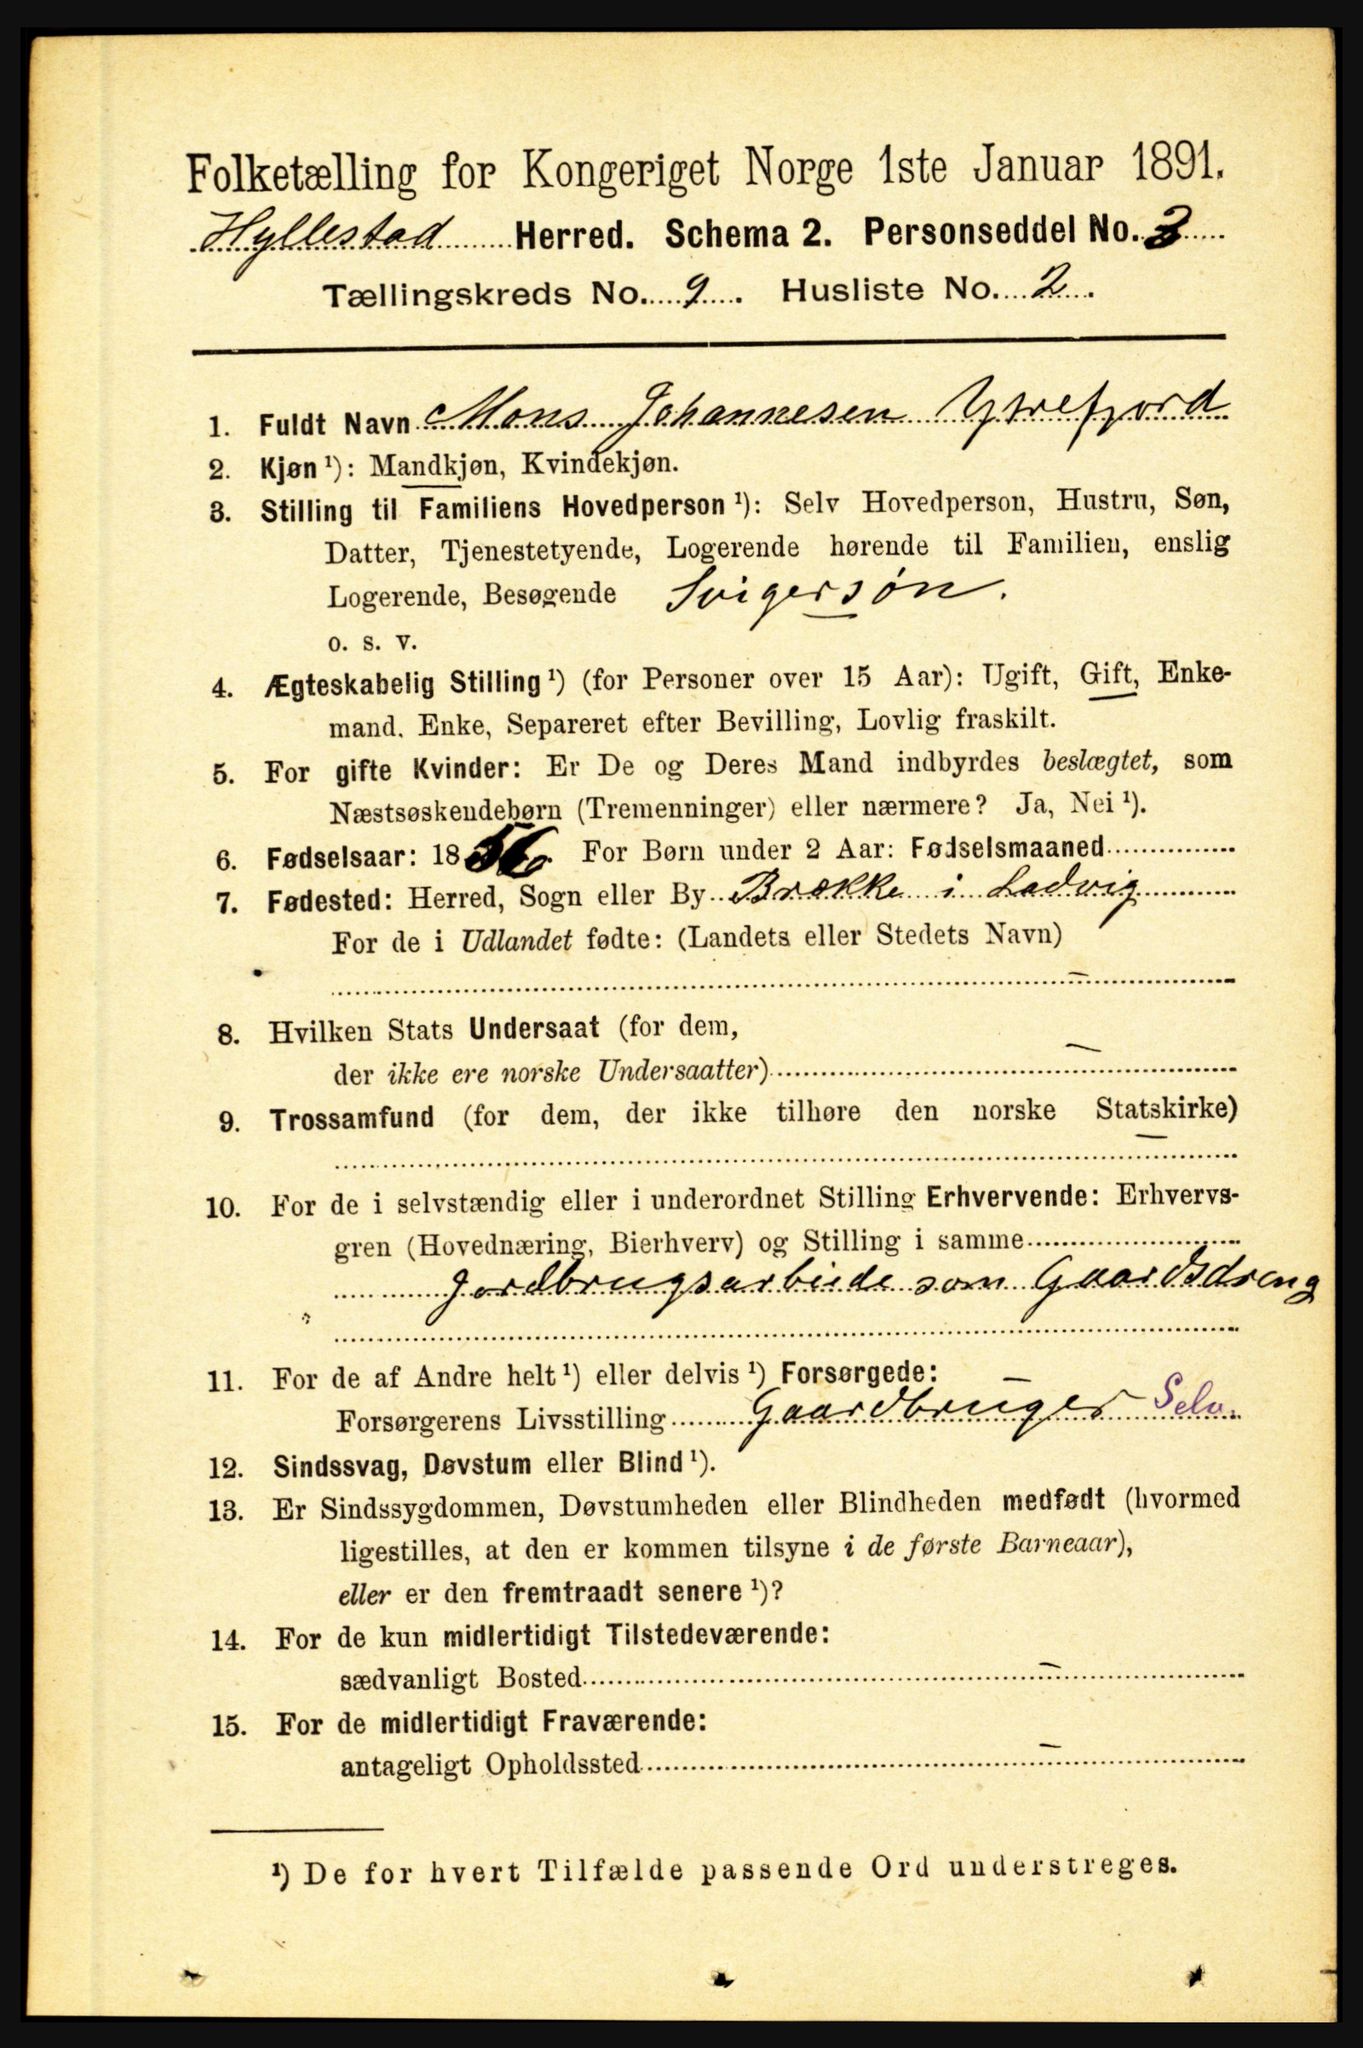 Folketælling for Kongeriget Norge 1ste Januar 1891.
Hyllestad Herred. Schema 2. Personseddel No. 3
Tællingskreds No. 9. Husliste No. 2.
1. Fuldt Navn Mons Johannesen Ytrefjord
2. Kjøn ¹): Mandkjøn, Kvindekjøn.
3. Stilling til Familiens Hovedperson ¹): Selv Hovedperson, Hustru, Søn,
Datter, Tjenestetyende, Logerende hørende til Familien, enslig
Logerende, Besøgende Svigersøn.
o. s. v.
4. Ægteskabelig Stilling ¹) (for Personer over 15 Aar): Ugift, Gift, Enke-
mand, Enke, Separeret efter Bevilling, Lovlig fraskilt.
5. For gifte Kvinder: Er De og Deres Mand indbyrdes beslægtet, som
Næstsøskendebørn (Tremenninger) eller nærmere? Ja, Nei ¹).
6. Fødselsaar: 1856. For Børn under 2 Aar: Fødselsmaaned
7. Fødested: Herred, Sogn eller By Brække i Ladvig
For de i Udlandet fødte: (Landets eller Stedets Navn)
—
8. Hvilken Stats Undersaat (for dem,
der ikke ere norske Undersaatter) —
9. Trossamfund (for dem, der ikke tilhøre den norske Statskirke)
—
10. For de i selvstændig eller i underordnet Stilling Erhvervende: Erhvervs-
gren (Hovednæring, Bierhverv) og Stilling i samme
Jordbrugsarbeide som Gaardsdreng
11. For de af Andre helt ¹) eller delvis ¹) Forsørgede:
Forsørgerens Livsstilling Gaardbruger Selv.
12. Sindssvag, Døvstum eller Blind ¹).
13. Er Sindssygdommen, Døvstumheden eller Blindheden medfødt (hvormed
ligestilles, at den er kommen tilsyne i de første Barneaar),
eller er den fremtraadt senere ¹)?
14. For de kun midlertidigt Tilstedeværende:
sædvanligt Bosted —
15. For de midlertidigt Fraværende:
antageligt Opholdssted —
¹) De for hvert Tilfælde passende Ord understreges.